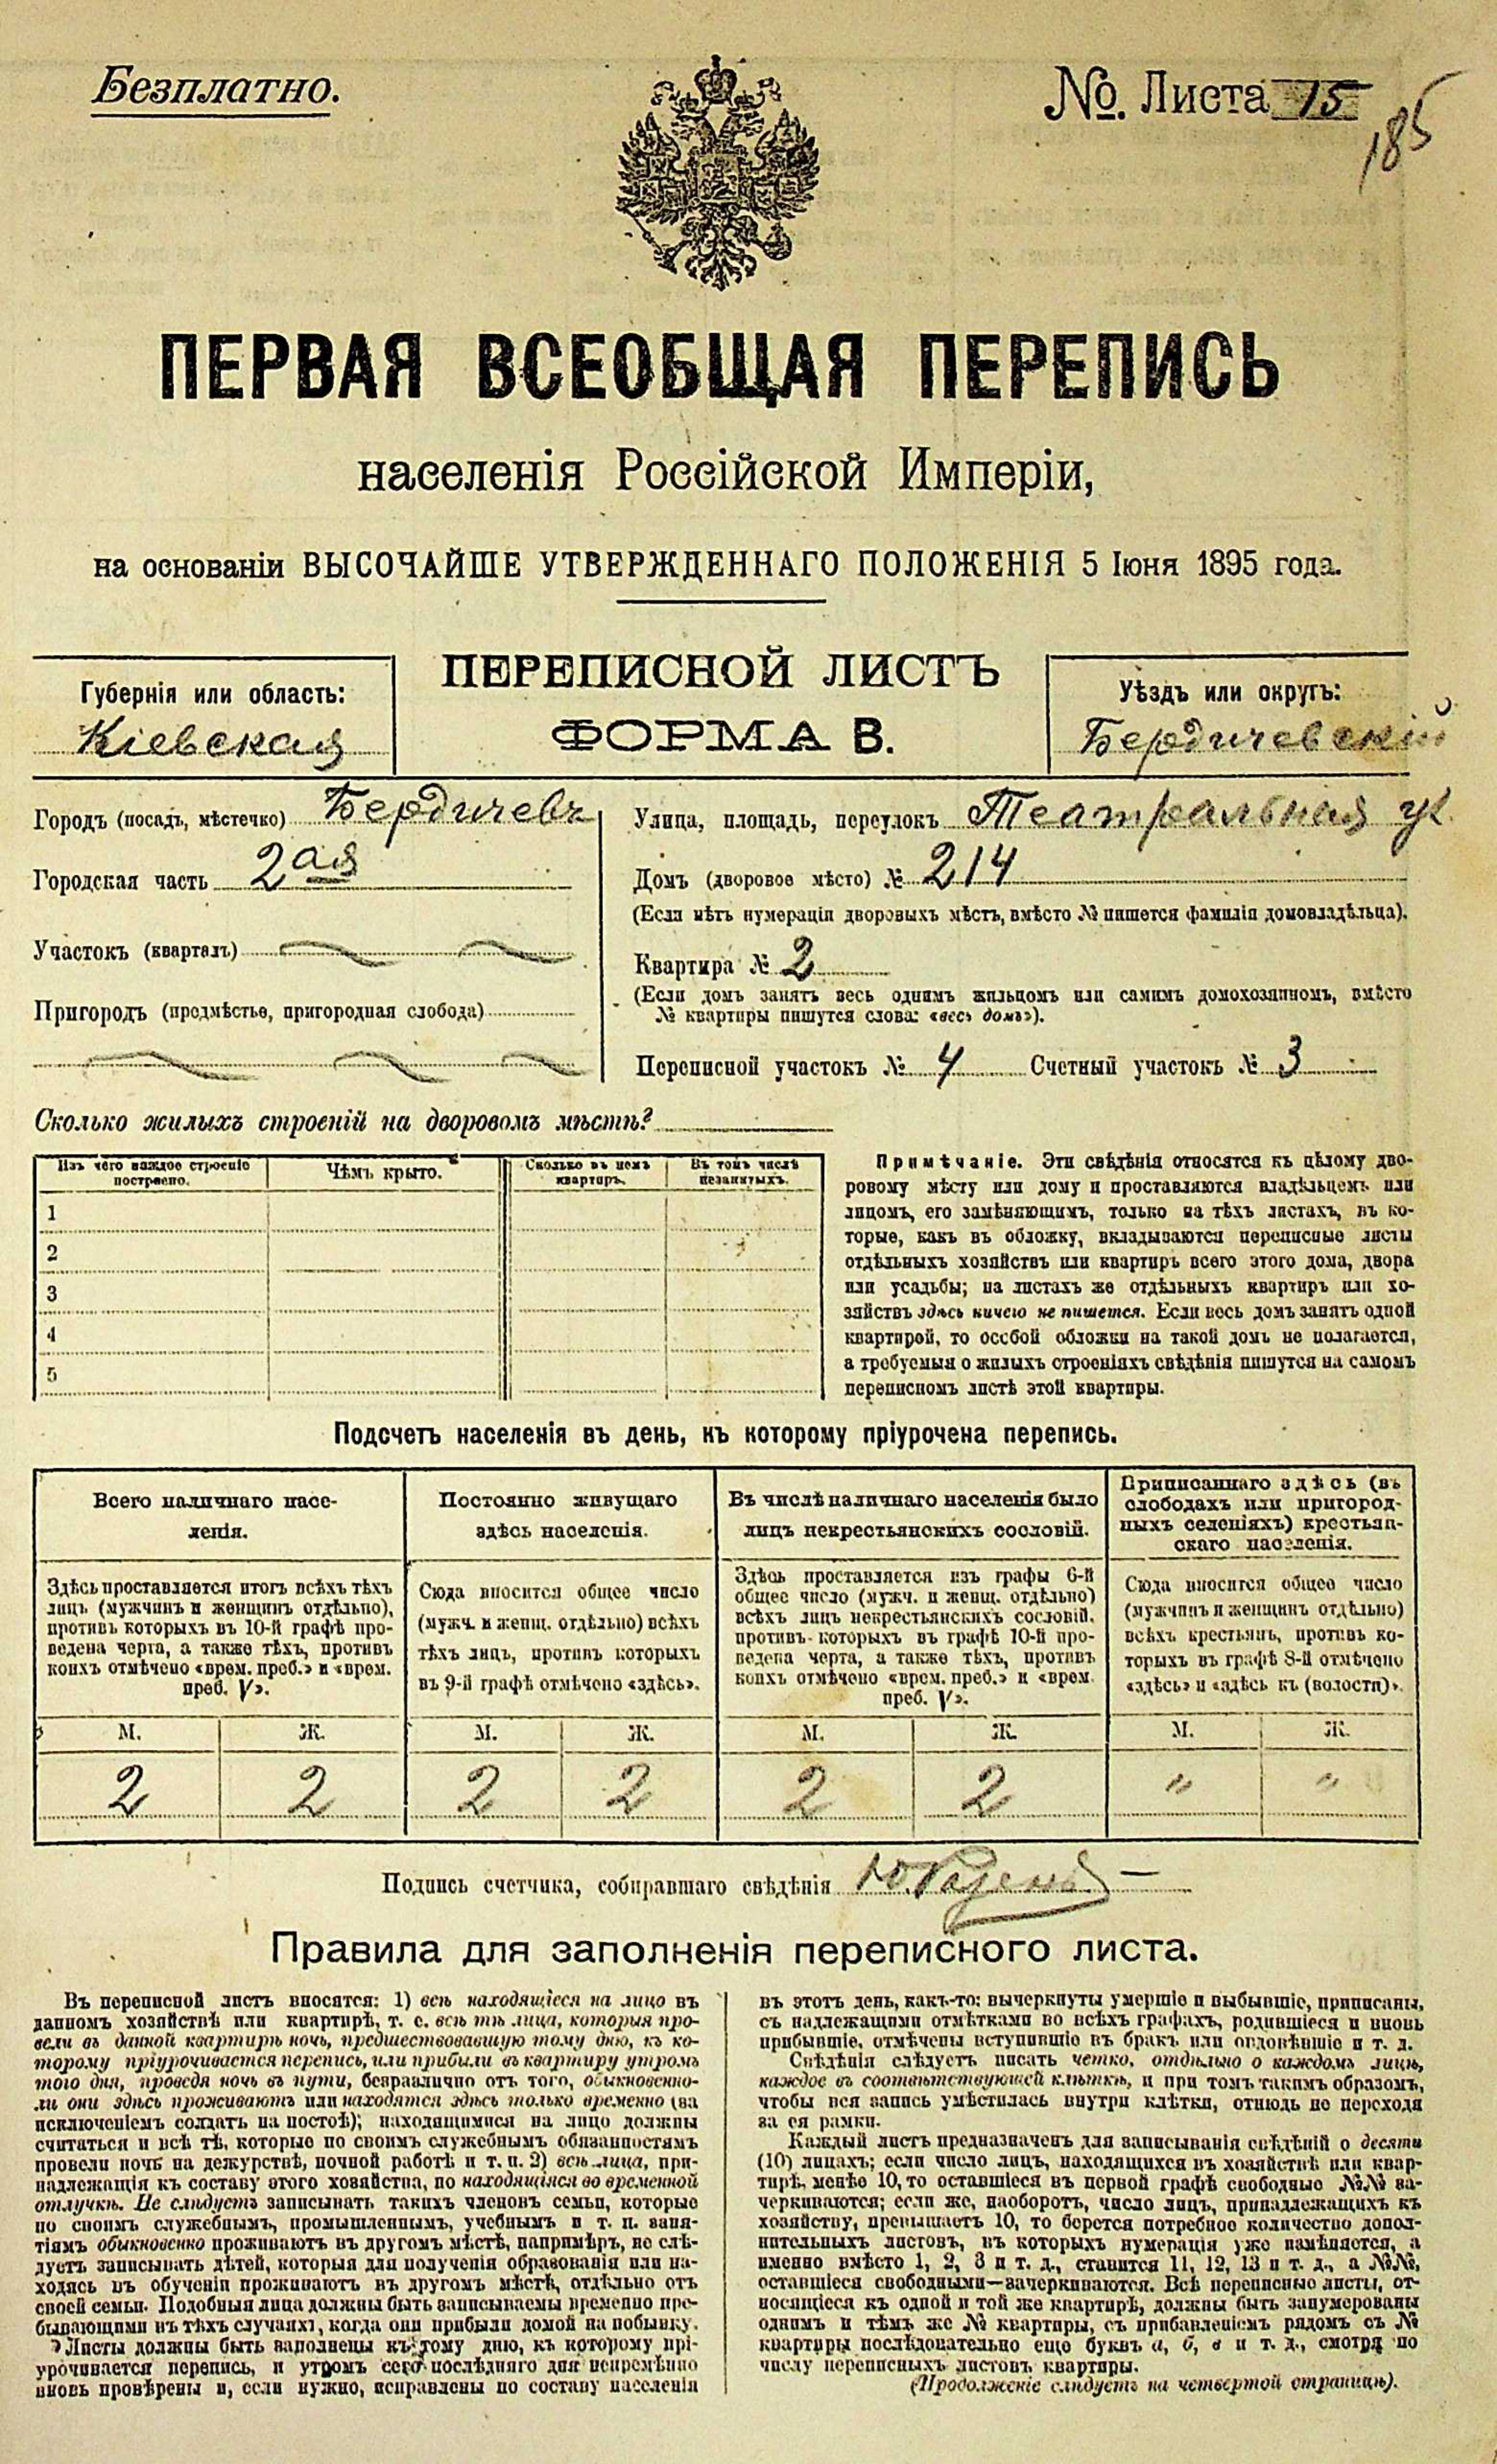 Безплатно.
№. Листа 15
185
ПЕРВАЯ ВСЕОБЩАЯ ПЕРЕПИСЬ
населенія Россійской Имперіи,
на основаніи ВЫСОЧАЙШЕ УТВЕРЖДЕННАГО ПОЛОЖЕНІЯ 5 Іюня 1895 года.
ПЕРЕПИСНОЙ ЛИСТЪ
ФОРМА В.
Губернія или область:
Кіевская
Уѣздъ или округъ:
Бердичевскій
Городъ (посадъ, мѣстечко) Бердичевъ
Городская часть 2ая
Участокъ (кварталъ)
Пригородъ (предмѣстье, пригородная слобода)
Улица, площадь, переулокъ Театральная ул.
Домъ (дворовое мѣсто) № 214
(Если нѣтъ нумераціи дворовыхъ мѣстъ, вмѣсто № пишется фамилія домовладѣльца).
Квартира № 2
(Если домъ занятъ весь однимъ жильцомъ или самимъ домохозяиномъ, вмѣсто
№ квартиры пишутся слова: «весь домъ»).
Переписной участокъ № 4 Счетный участокъ № 3
Сколько жилыхъ строеній на дворовомъ мѣстѣ?
Изъ чего каждое строеніе
построено.
Чѣмъ крыто.
Сколько въ немъ
квартиръ.
Въ томъ числѣ
незанятыхъ.
1
2
3
4
5
Примѣчаніе. Эти свѣдѣнія относятся къ цѣлому дво-
ровому мѣсту или дому и проставляются владѣльцемъ или
лицомъ, его замѣняющимъ, только на тѣхъ листахъ, въ ко-
торые, какъ въ обложку, вкладываются переписные листы
отдѣльныхъ хозяйствъ или квартиръ всего этого дома, двора
или усадьбы; на листахъ же отдѣльныхъ квартиръ или хо-
зяйствъ здѣсь ничего не пишется. Если весь домъ занятъ одной
квартирой, то особой обложки на такой домъ не полагается,
а требуемыя о жилыхъ строеніяхъ свѣдѣнія пишутся на самомъ
переписномъ листѣ этой квартиры.
Подсчетъ населенія въ день, къ которому пріурочена перепись.
Всего наличнаго насе-
ленія.
Здѣсь проставляется итогъ всѣхъ тѣхъ
лицъ (мужчинъ и женщинъ отдѣльно),
противъ которыхъ въ 10-й графѣ про-
ведена черта, а также тѣхъ, противъ
коихъ отмѣчено «врем. преб.» и «врем.
преб. V».
М. Ж.
2 2
Постоянно живущаго
здѣсь населенія.
Сюда вносится общее число
(мужч. и женщ. отдѣльно) всѣхъ
тѣхъ лицъ, противъ которыхъ
въ 9-й графѣ отмѣчено «здѣсь».
М. Ж.
2 2
Въ числѣ наличнаго населенія было
лицъ некрестьянскихъ сословій.
Здѣсь проставляется изъ графы 6-й
общее число (мужч. и женщ. отдѣльно)
всѣхъ лицъ некрестьянскихъ сословій,
противъ которыхъ въ графѣ 10-й про-
ведена черта, а также тѣхъ, противъ
коихъ отмѣчено «врем. преб.» и «врем.
преб. V».
М. Ж.
2 2
Приписаннаго здѣсь (въ
слободахъ или пригород-
ныхъ селеніяхъ) крестьян-
скаго населенія.
Сюда вносится общее число
(мужчинъ и женщинъ отдѣльно)
всѣхъ крестьянъ, противъ ко-
торыхъ въ графѣ 8-й отмѣчено
«здѣсь» и «здѣсь къ (волости)».
М. Ж.
" "
Подпись счетчика, собиравшаго свѣдѣнія
Правила для заполненія переписного листа.
Въ переписной листъ вносятся: 1) всѣ находящіеся на лицо въ
данномъ хозяйствѣ или квартирѣ, т. е. всѣ тѣ лица, которыя про-
вели въ данной квартирѣ ночь, предшествовавшую тому дню, къ ко-
торому пріурочивается перепись, или прибыли въ квартиру утромъ
того дня, проведя ночь въ пути, безразлично отъ того, обыкновенно-
ли они здѣсь проживаютъ или находятся здѣсь только временно (за
исключеніемъ солдатъ на постоѣ); находящимися на лицо должны
считаться и всѣ тѣ, которые по своимъ служебнымъ обязанностямъ
провели ночь на дежурствѣ, ночной работѣ и т. п. 2) всѣ лица, при-
надлежащія къ составу этого хозяйства, но находящіяся во временной
отлучкѣ. Не слѣдуетъ записывать такихъ членовъ семьи, которые
по своимъ служебнымъ, промышленнымъ, учебнымъ и т. п. заня-
тіямъ обыкновенно проживаютъ въ другомъ мѣстѣ, напримѣръ, не слѣ-
дуетъ записывать дѣтей, которыя для полученія образованія или на-
ходясь въ обученіи проживаютъ въ другомъ мѣстѣ, отдѣльно отъ
своей семьи. Подобныя лица должны быть записываемы временно пре-
бывающими въ тѣхъ случаяхъ, когда они прибыли домой на побывку.
Листы должны быть заполнены къ тому дню, къ которому прі-
урочивается перепись, и утромъ сего послѣдняго дня непремѣнно
вновь провѣрены и, если нужно, исправлены по составу населенія
въ этотъ день, какъ-то: вычеркнуты умершіе и выбывшіе, приписаны,
съ надлежащими отмѣтками во всѣхъ графахъ, родившіеся и вновь
прибывшіе, отмѣчены вступившіе въ бракъ или овдовѣвшіе и т. д.
Свѣдѣнія слѣдуетъ писать четко, отдѣльно о каждомъ лицѣ,
каждое въ соотвѣтствующей клѣткѣ, и при томъ такимъ образомъ,
чтобы вся запись умѣстилась внутри клѣтки, отнюдь не переходя
за ея рамки.
Каждый листъ предназначенъ для записыванія свѣдѣній о десяти
(10) лицахъ; если число лицъ, находящихся въ хозяйствѣ или квар-
тирѣ, менѣе 10, то оставшіеся въ первой графѣ свободные №№ за-
черкиваются; если же, наоборотъ, число лицъ, принадлежащихъ къ
хозяйству, превышаетъ 10, то берется потребное количество допол-
нительныхъ листовъ, въ которыхъ нумерація уже измѣняется, а
именно вмѣсто 1, 2, 3 и т. д., ставится 11, 12, 13 и т. д., а №№,
оставшіеся свободными—зачеркиваются. Всѣ переписные листы, от-
носящіеся къ одной и той же квартирѣ, должны быть занумерованы
однимъ и тѣмъ же № квартиры, съ прибавленіемъ рядомъ съ №
квартиры послѣдовательно еще буквъ а, б, в и т. д., смотря по
числу переписныхъ листовъ квартиры.
(Продолженіе слѣдуетъ на четвертой страницѣ).